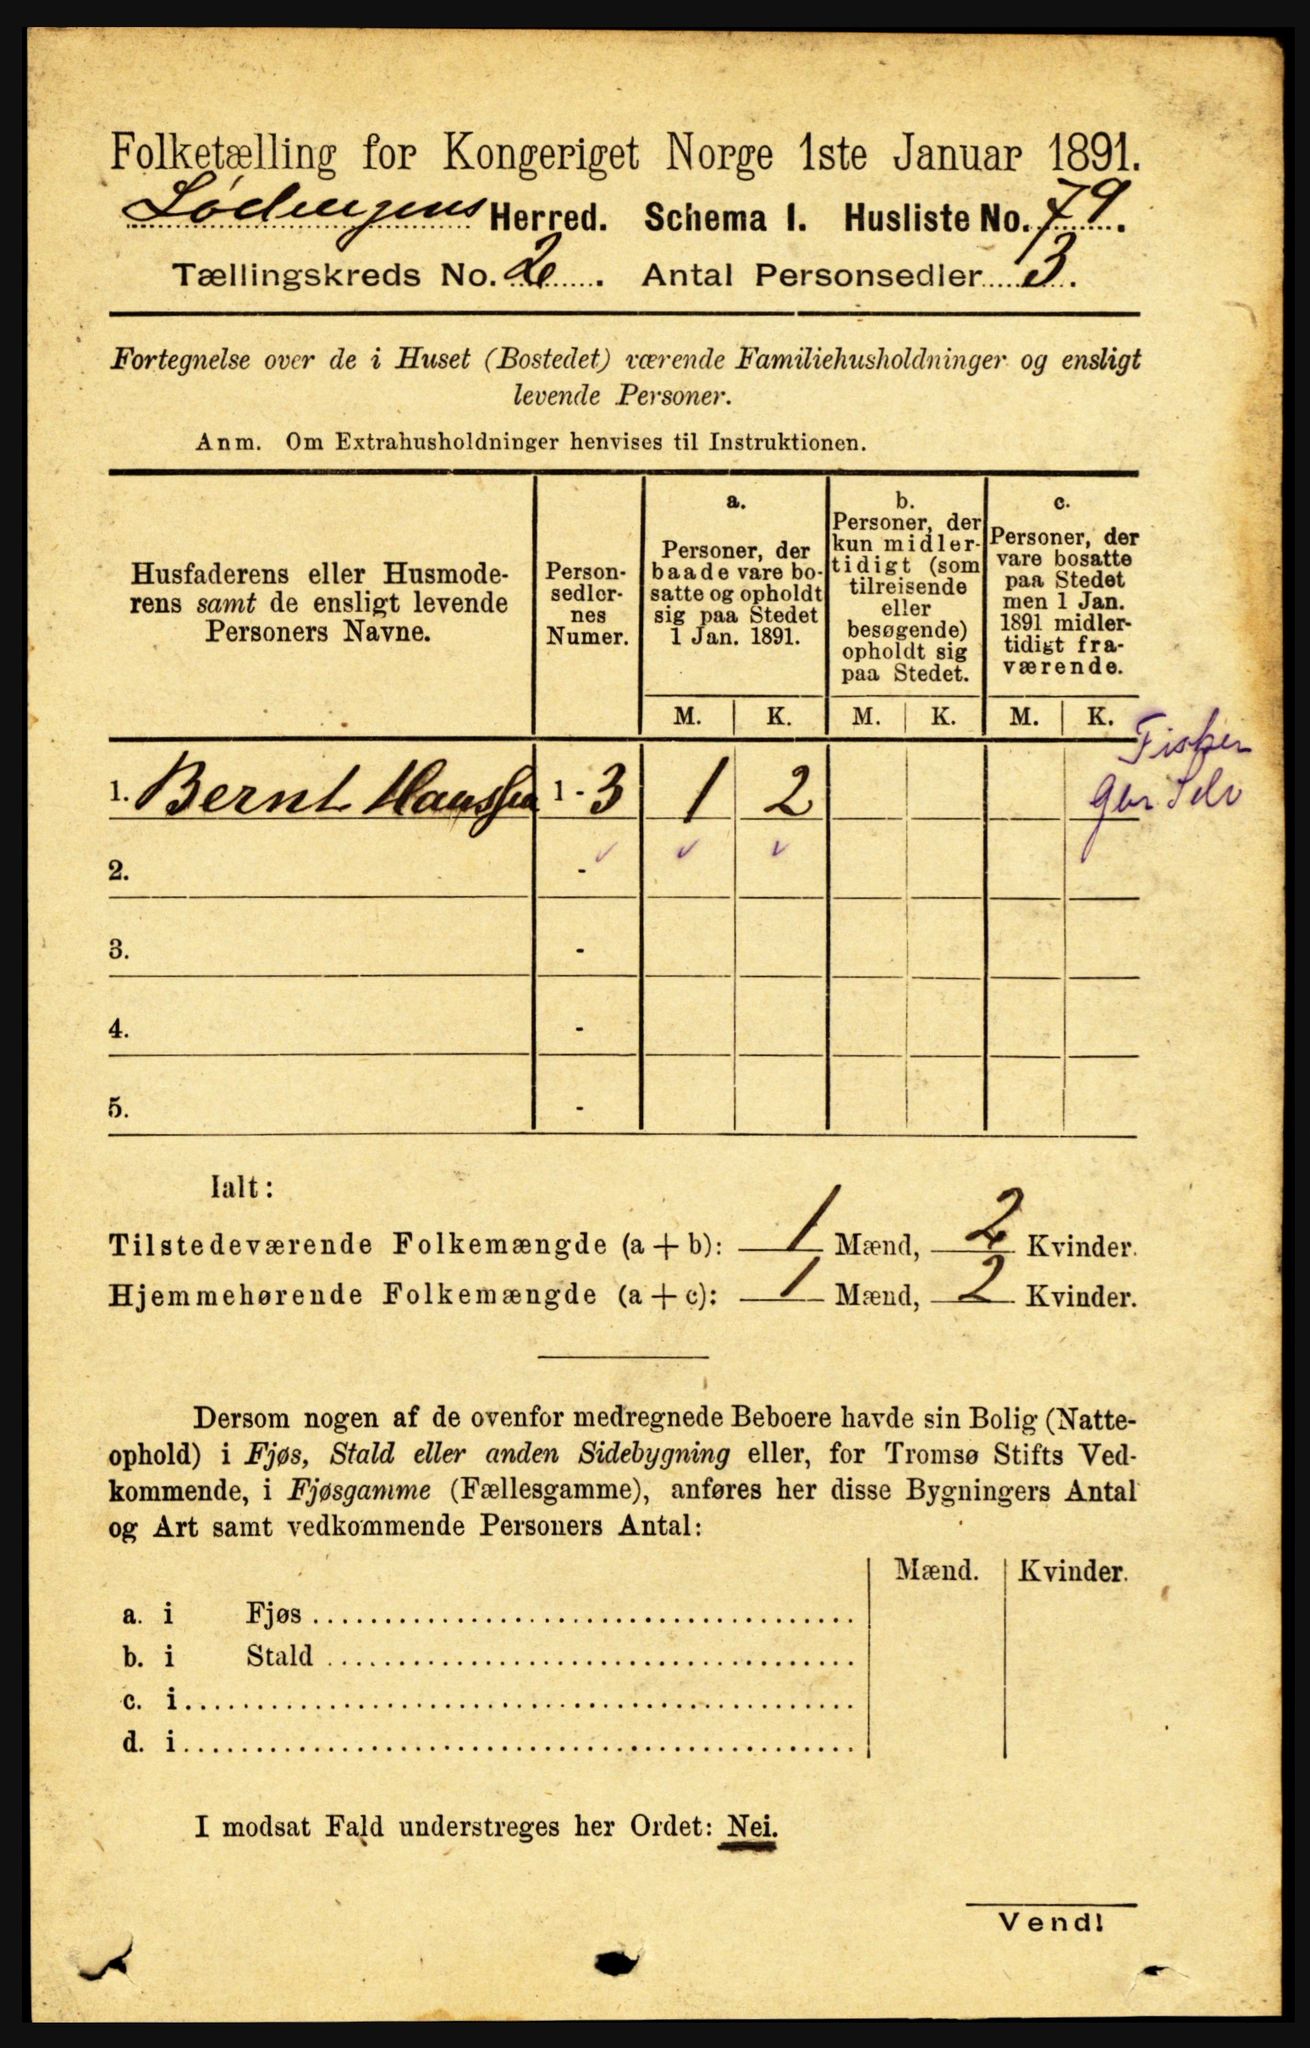 Folketælling for Kongeriget Norge 1ste Januar 1891.
Lødingens Herred. Schema 1. Husliste No. 79.
Tællingskreds No. 2. Antal Personsedler 3.
Fortegnelse over de i Huset (Bostedet) værende Familiehusholdninger og ensligt
levende Personer.
Anm. Om Extrahusholdninger henvises til Instruktionen.
Husfaderens eller Husmode-
rens samt de ensligt levende
Personers Navne.
Person-
sedler-
nes
Numer.
a.
Personer, der
baade vare bo-
satte og opholdt
sig paa Stedet
1 Jan. 1891.
b.
Personer, der
kun midler-
tidigt (som
tilreisende
eller
besøgende)
opholdt sig
paa Stedet.
c.
Personer, der
vare bosatte
paa Stedet
men 1 Jan.
1891 midler-
tidigt fra-
værende.
M. K. M. K. M. K.
Fisker
1. Bernt Hanssen 1 - 3 1 2
Gbr Selv
2. -
3. -
4. -
5. -
Ialt:
Tilstedeværende Folkemængde (a + b): 1 Mænd, 2 Kvinder.
Hjemmehørende Folkemængde (a + c): 1 Mænd, 2 Kvinder.
Dersom nogen af de ovenfor medregnede Beboere havde sin Bolig (Natte-
ophold) i Fjøs, Stald eller anden Sidebygning eller, for Tromsø Stifts Ved-
kommende, i Fjøsgamme (Fællesgamme), anføres her disse Bygningers Antal
og Art samt vedkommende Personers Antal:
Mænd. Kvinder.
a. i Fjøs
b. i Stald
c. i
d. i
I modsat Fald understreges her Ordet: Nei.
Vend!